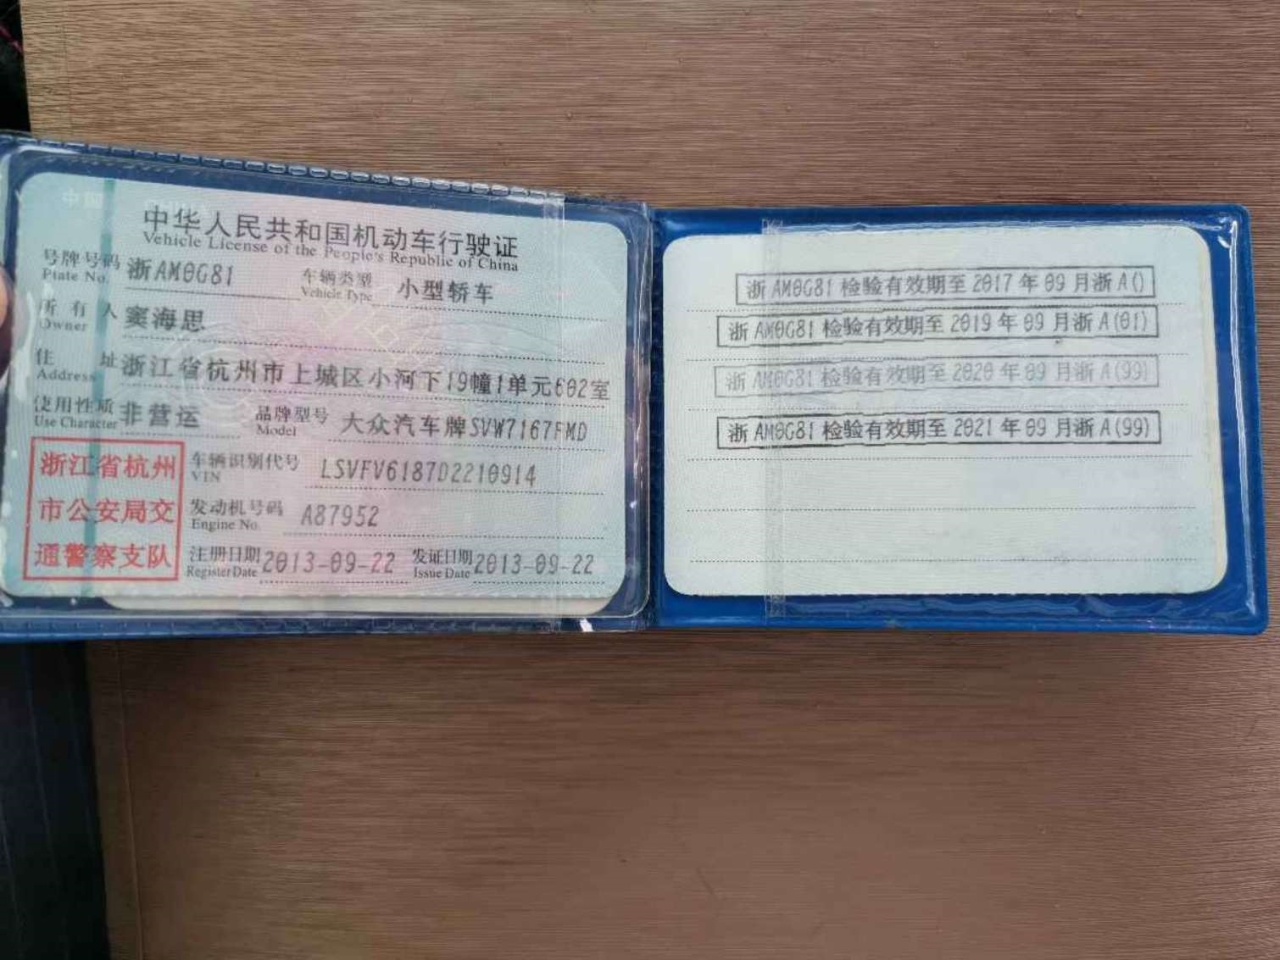 中国
中华人民共和国机动车行驶证
Vehicle License of the People's Republic of China
号牌号码 浙AM0G81 车辆类型 小型轿车
Plate No. Vehicle Type
所有人 窦海思
Owner
住址 浙江省杭州市上城区小河下19幢1单元602室
Address
使用性质 非营运 品牌型号 大众汽车牌SVW7167FMD
Use Character Model
浙江省杭州
市公安局交
通警察支队
车辆识别代号 LSVFV6187D2210914
VIN
发动机号码 A87952
Engine No.
注册日期 2013-09-22 发证日期 2013-09-22
Register Date Issue Date
浙AM0G81检验有效期至2017年09月浙A()
浙AM0G81检验有效期至2019年09月浙A(01)
浙AM0G81检验有效期至2020年09月浙A(99)
浙AM0G81检验有效期至2021年09月浙A(99)